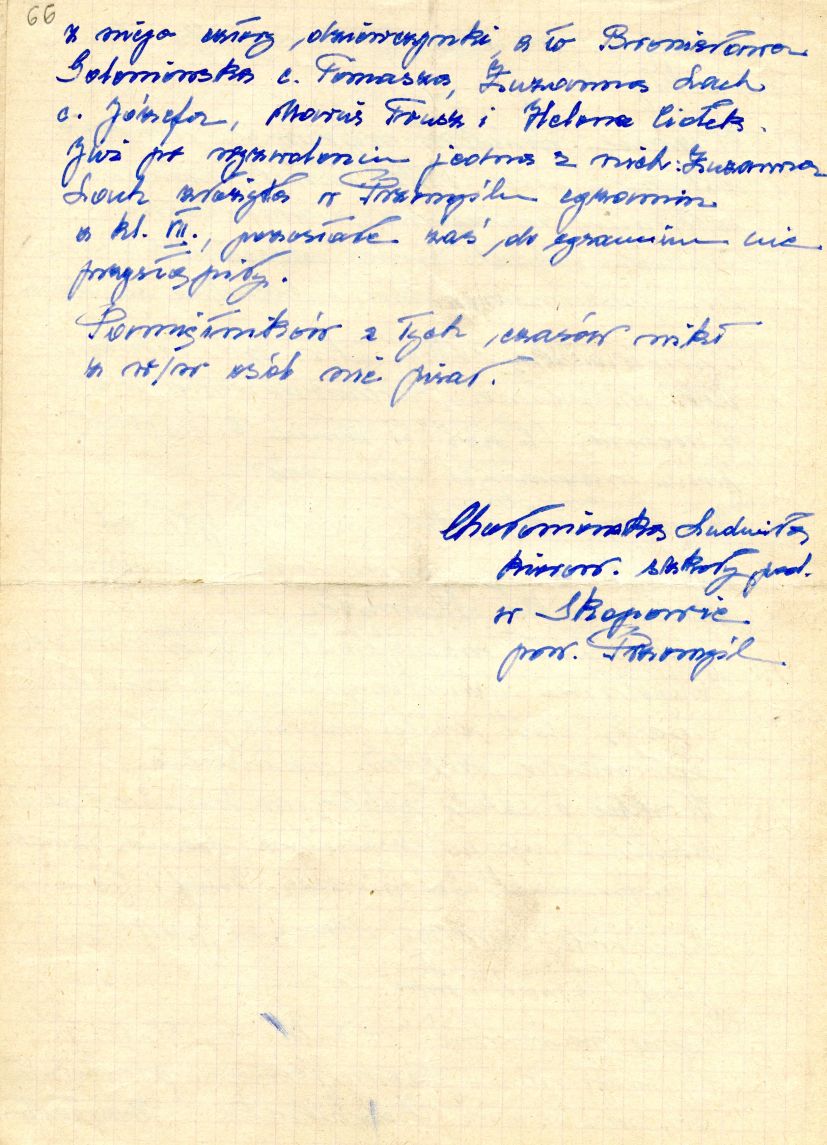 66
z niego cztery dziewczynki, a to Bronisława
c. Tomasza, Zuzanna Lach
c. Józefa, Maria i Helena Ciołek.
Już po wyzwoleniu jedna z nich: Zuzanna
Lach złożyła w Przemyślu egzamin
z kl. VII., pozostałe zaś do egzaminu nie
przystąpiły.
Pamiętników z tych czasów nikt
z w/w osób nie pisał.
Ludwika
kierow. szkoły pod.
w Skopowie
pow. Przemyśl.